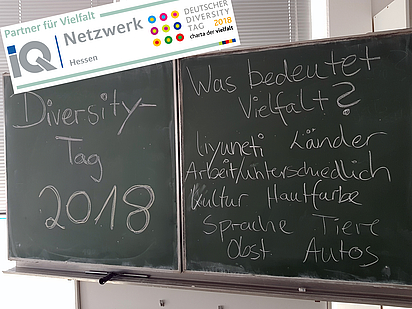 Partner für Vielfalt
iQ Netzwerk
Hessen
DEUTSCHER
DIVERSITY
TAG 2018
charta der vielfalt
Diversity-
Tag
2018
Was bedeutet
Vielfalt?
liyuneti Länder
Arbeit/unterschiedlich
Kultur Hautfarbe
Sprache Tiere
Obst Autos